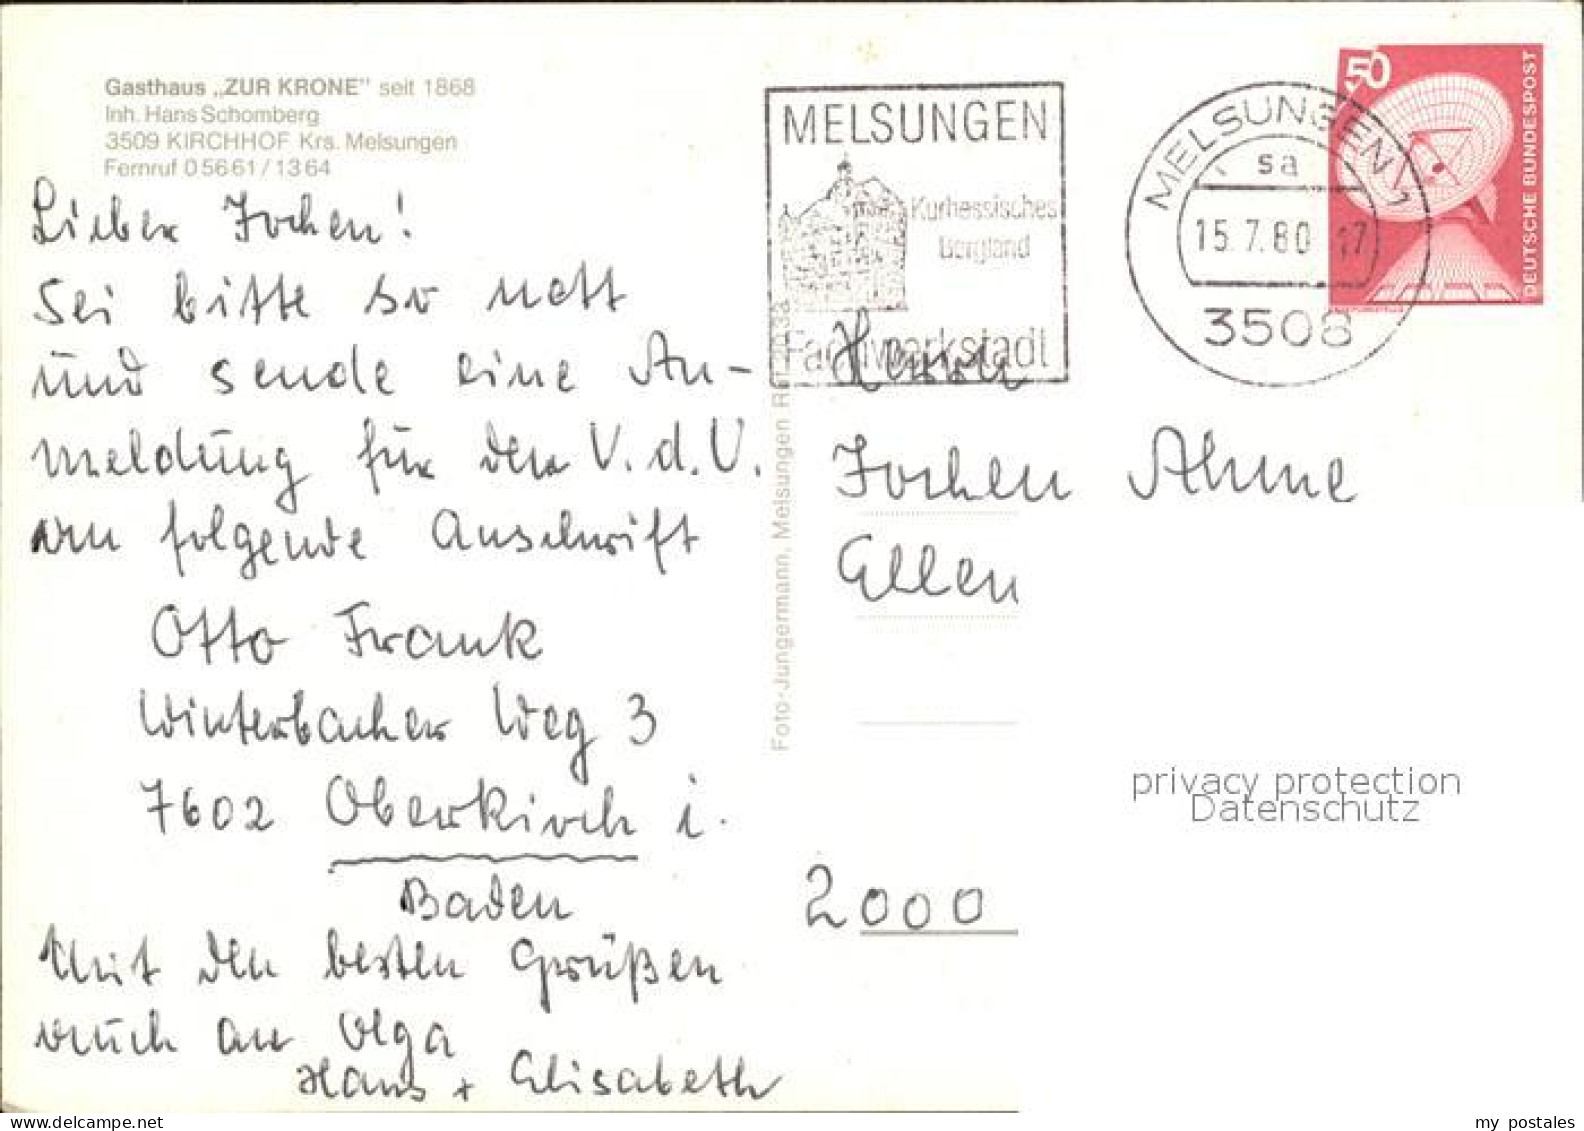 Gasthaus „ZUR KRONE" seit 1868
Inh. Hans Schomberg
3509 KIRCHHOF Krs. Melsungen
Fernruf 0 56 61 / 13 64
Lieber Jochen!
Sei bitte so nett
und sende eine An-
meldung für den V.d.U.
an folgende Anschrift
Otto Frank
Winterbacher Weg 3
7602 Oberkirch i.
Baden
Mit den besten Grüßen
auch an Olga
Hans + Elisabeth
Foto-Jungermann, Melsungen
MELSUNGEN
Kurhessisches
Bergland
Fachwerkstadt
MELSUNGEN 1
sa
15.7.80 17
3508
50
DEUTSCHE BUNDESPOST
Herrn
Jochen Ahme
Ellen
2000
privacy protection
Datenschutz
my postales